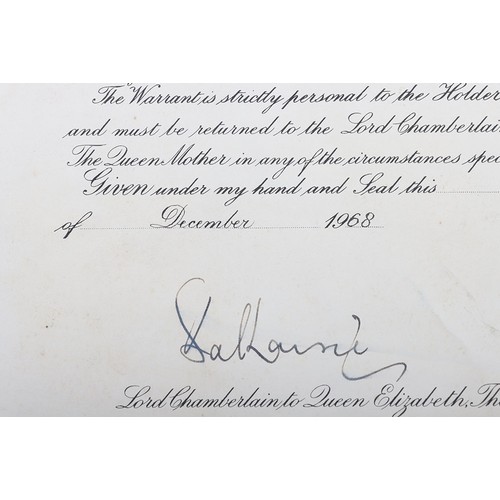 The Warrant is strictly personal to the Holder
and must be returned to the Lord Chamberlain
The Queen Mother in any of the circumstances spec
Given under my hand and Seal this
of December 1968
Dalhousie
Lord Chamberlain to Queen Elizabeth, The